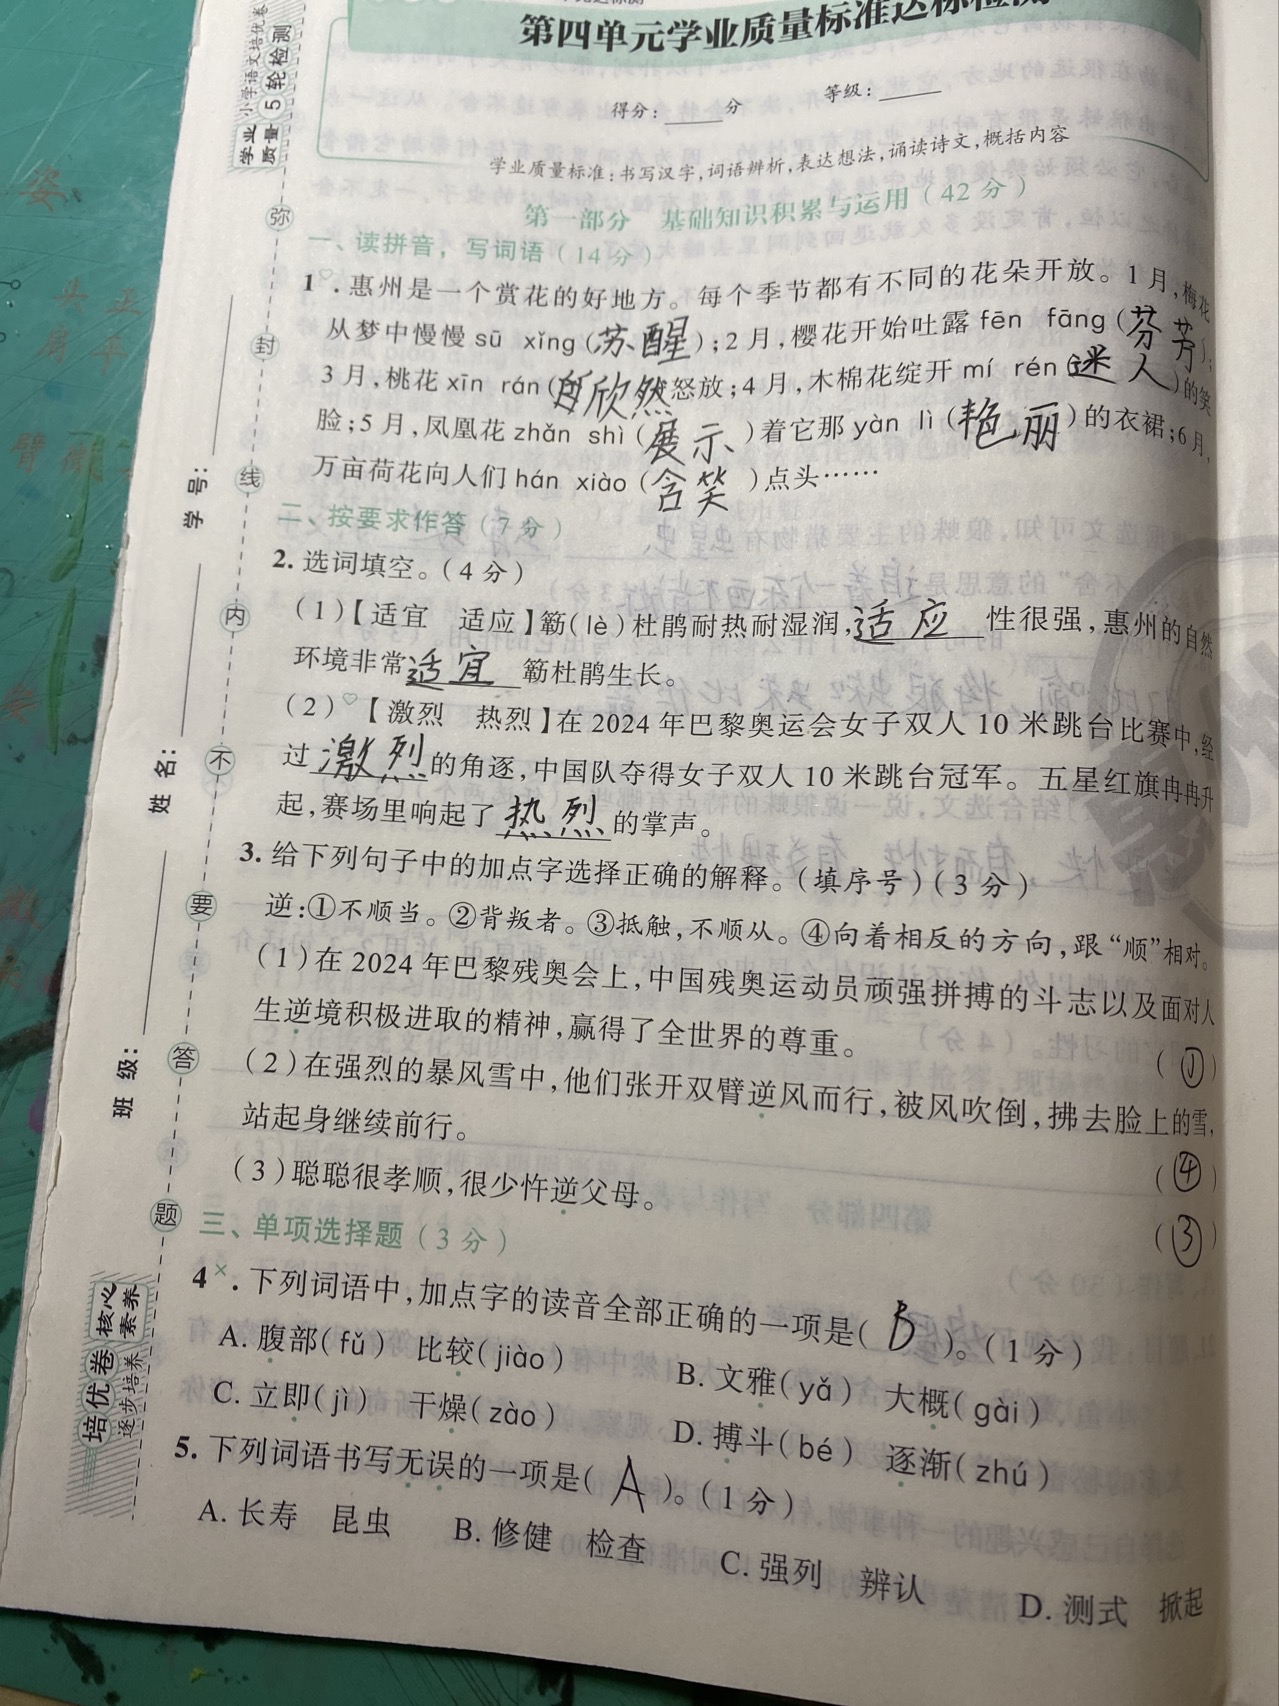 第四单元学业质量标准达标检测
得分：____分 等级：____
学业质量标准：书写汉字，词语辨析，表达想法，诵读诗文，概括内容
第一部分 基础知识积累与运用（42分）
一、读拼音，写词语（14分）
1♡．惠州是一个赏花的好地方。每个季节都有不同的花朵开放。1月，梅花
从梦中慢慢 sū xǐng（苏醒）；2月，樱花开始吐露 fēn fāng（芬芳）；
3月，桃花 xīn rán（欣然）怒放；4月，木棉花绽开 mí rén（迷人）的笑
脸；5月，凤凰花 zhǎn shì（展示）着它那 yàn lì（艳丽）的衣裙；6月，
万亩荷花向人们 hán xiào（含笑）点头……
二、按要求作答（7分）
2. 选词填空。（4分）
（1）【适宜 适应】簕（lè）杜鹃耐热耐湿润，适应性很强，惠州的自然
环境非常适宜簕杜鹃生长。
（2）♡【激烈 热烈】在2024年巴黎奥运会女子双人10米跳台比赛中，经
过激烈的角逐，中国队夺得女子双人10米跳台冠军。五星红旗冉冉升
起，赛场里响起了热烈的掌声。
3. 给下列句子中的加点字选择正确的解释。（填序号）（3分）
逆：①不顺当。②背叛者。③抵触，不顺从。④向着相反的方向，跟“顺”相对。
（1）在2024年巴黎残奥会上，中国残奥运动员顽强拼搏的斗志以及面对人
生逆境积极进取的精神，赢得了全世界的尊重。（①）
（2）在强烈的暴风雪中，他们张开双臂逆风而行，被风吹倒，拂去脸上的雪，
站起身继续前行。（④）
（3）聪聪很孝顺，很少忤逆父母。（③）
三、单项选择题（3分）
4×．下列词语中，加点字的读音全部正确的一项是（B）。（1分）
A. 腹部（fǔ） 比较（jiào） B. 文雅（yǎ） 大概（gài）
C. 立即（jì） 干燥（zào） D. 搏斗（bé） 逐渐（zhú）
5. 下列词语书写无误的一项是（A）。（1分）
A. 长寿 昆虫 B. 修健 检查 C. 强列 辨认 D. 测式 掀起
小学语文培优卷
学业质量⑤轮检测
弥 封 线 内 不 要 答 题
学号：
姓名：
班级：
培优卷 核心素养 逐步培养